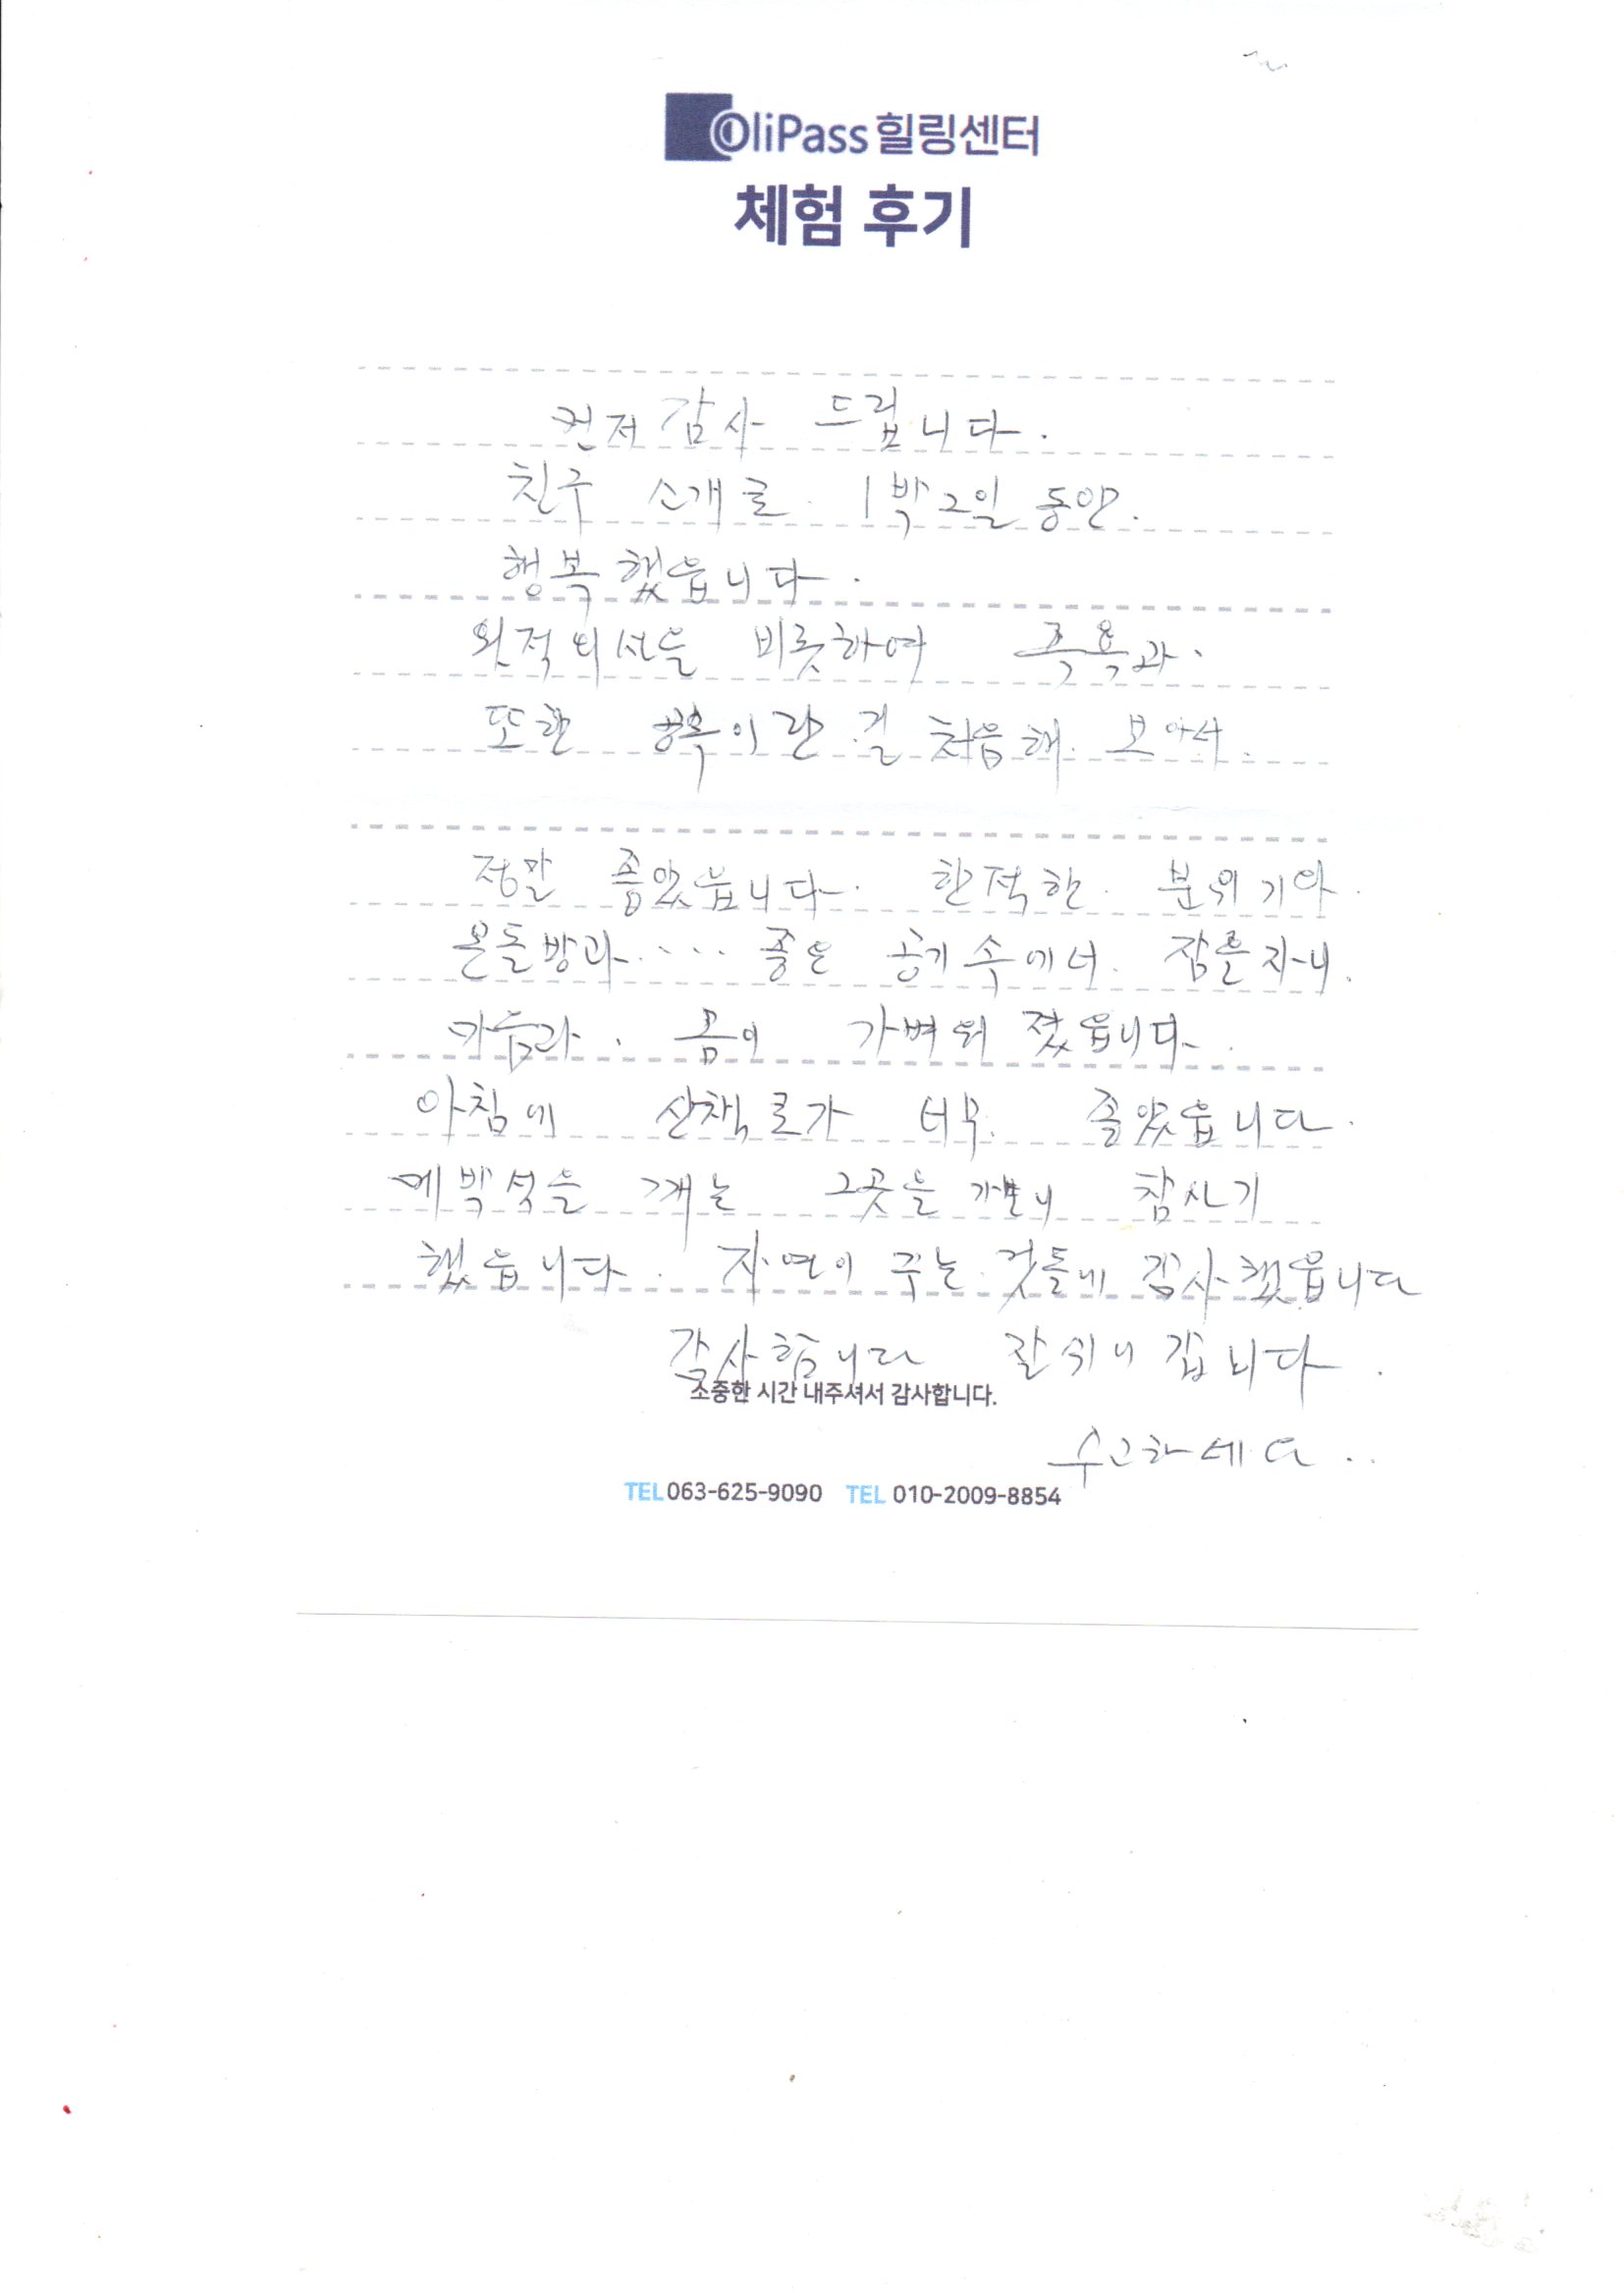 OliPass 힐링센터
체험 후기
먼저 감사 드립니다.
친구 소개로. 1박2일 동안.
행복했읍니다.
원적외선을 비롯하여 족욕과.
또한 이란 걸 처음해. 보아서.
정말 좋았읍니다. 한적한. 분위기와.
온돌방과.···· 좋은 공기 속에서. 잠을자니.
마음과. 몸이 가벼워 졌읍니다.
아침에 산책로가 너무. 좋았읍니다.
그곳을
했읍니다. 자연이 주는. 것들에 감사했읍니다
감사합니다 잘쉬니 갑니다.
소중한 시간 내주셔서 감사합니다.
수고하세요..
TEL 063-625-9090 TEL 010-2009-8854